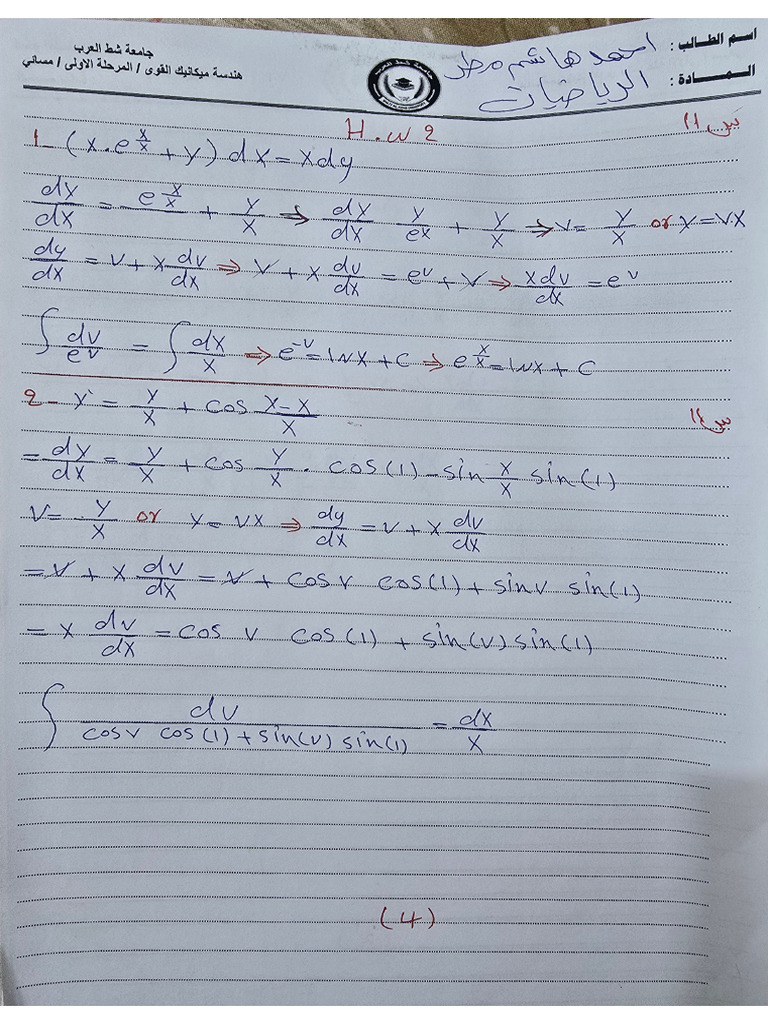 جامعة شط العرب
هندسة ميكانيك القوى / المرحلة الاولى / مسائي
اسم الطالب : احمد هاشم مطر
المـــادة : الرياضيات
H.w 2
س1/
1- (x.e^{x/x} + y) dx = x dy
dy/dx = e^{x/x} + y/x ⇒ dy/dx y/ex + y/x ⇒ v = y/x or y = v.x
dy/dx = v + x dv/dx ⇒ v + x dv/dx = e^v + v ⇒ x dv/dx = e^v
∫ dv/e^v = ∫ dx/x ⇒ e^{-v} = lnx + c ⇒ e^{x/x} = lnx + c
س2/
2- y` = y/x + cos x-x/x
= dy/dx = y/x + cos y/x . cos(1) - sin x/x sin(1)
v = y/x or y = vx ⇒ dy/dx = v + x dv/dx
= v + x dv/dx = v + cos v cos(1) + sin v sin(1)
= x dv/dx = cos v cos(1) + sin(v) sin(1)
∫ dv/cos v cos(1) + sin(v) sin(1) = dx/x
(4)